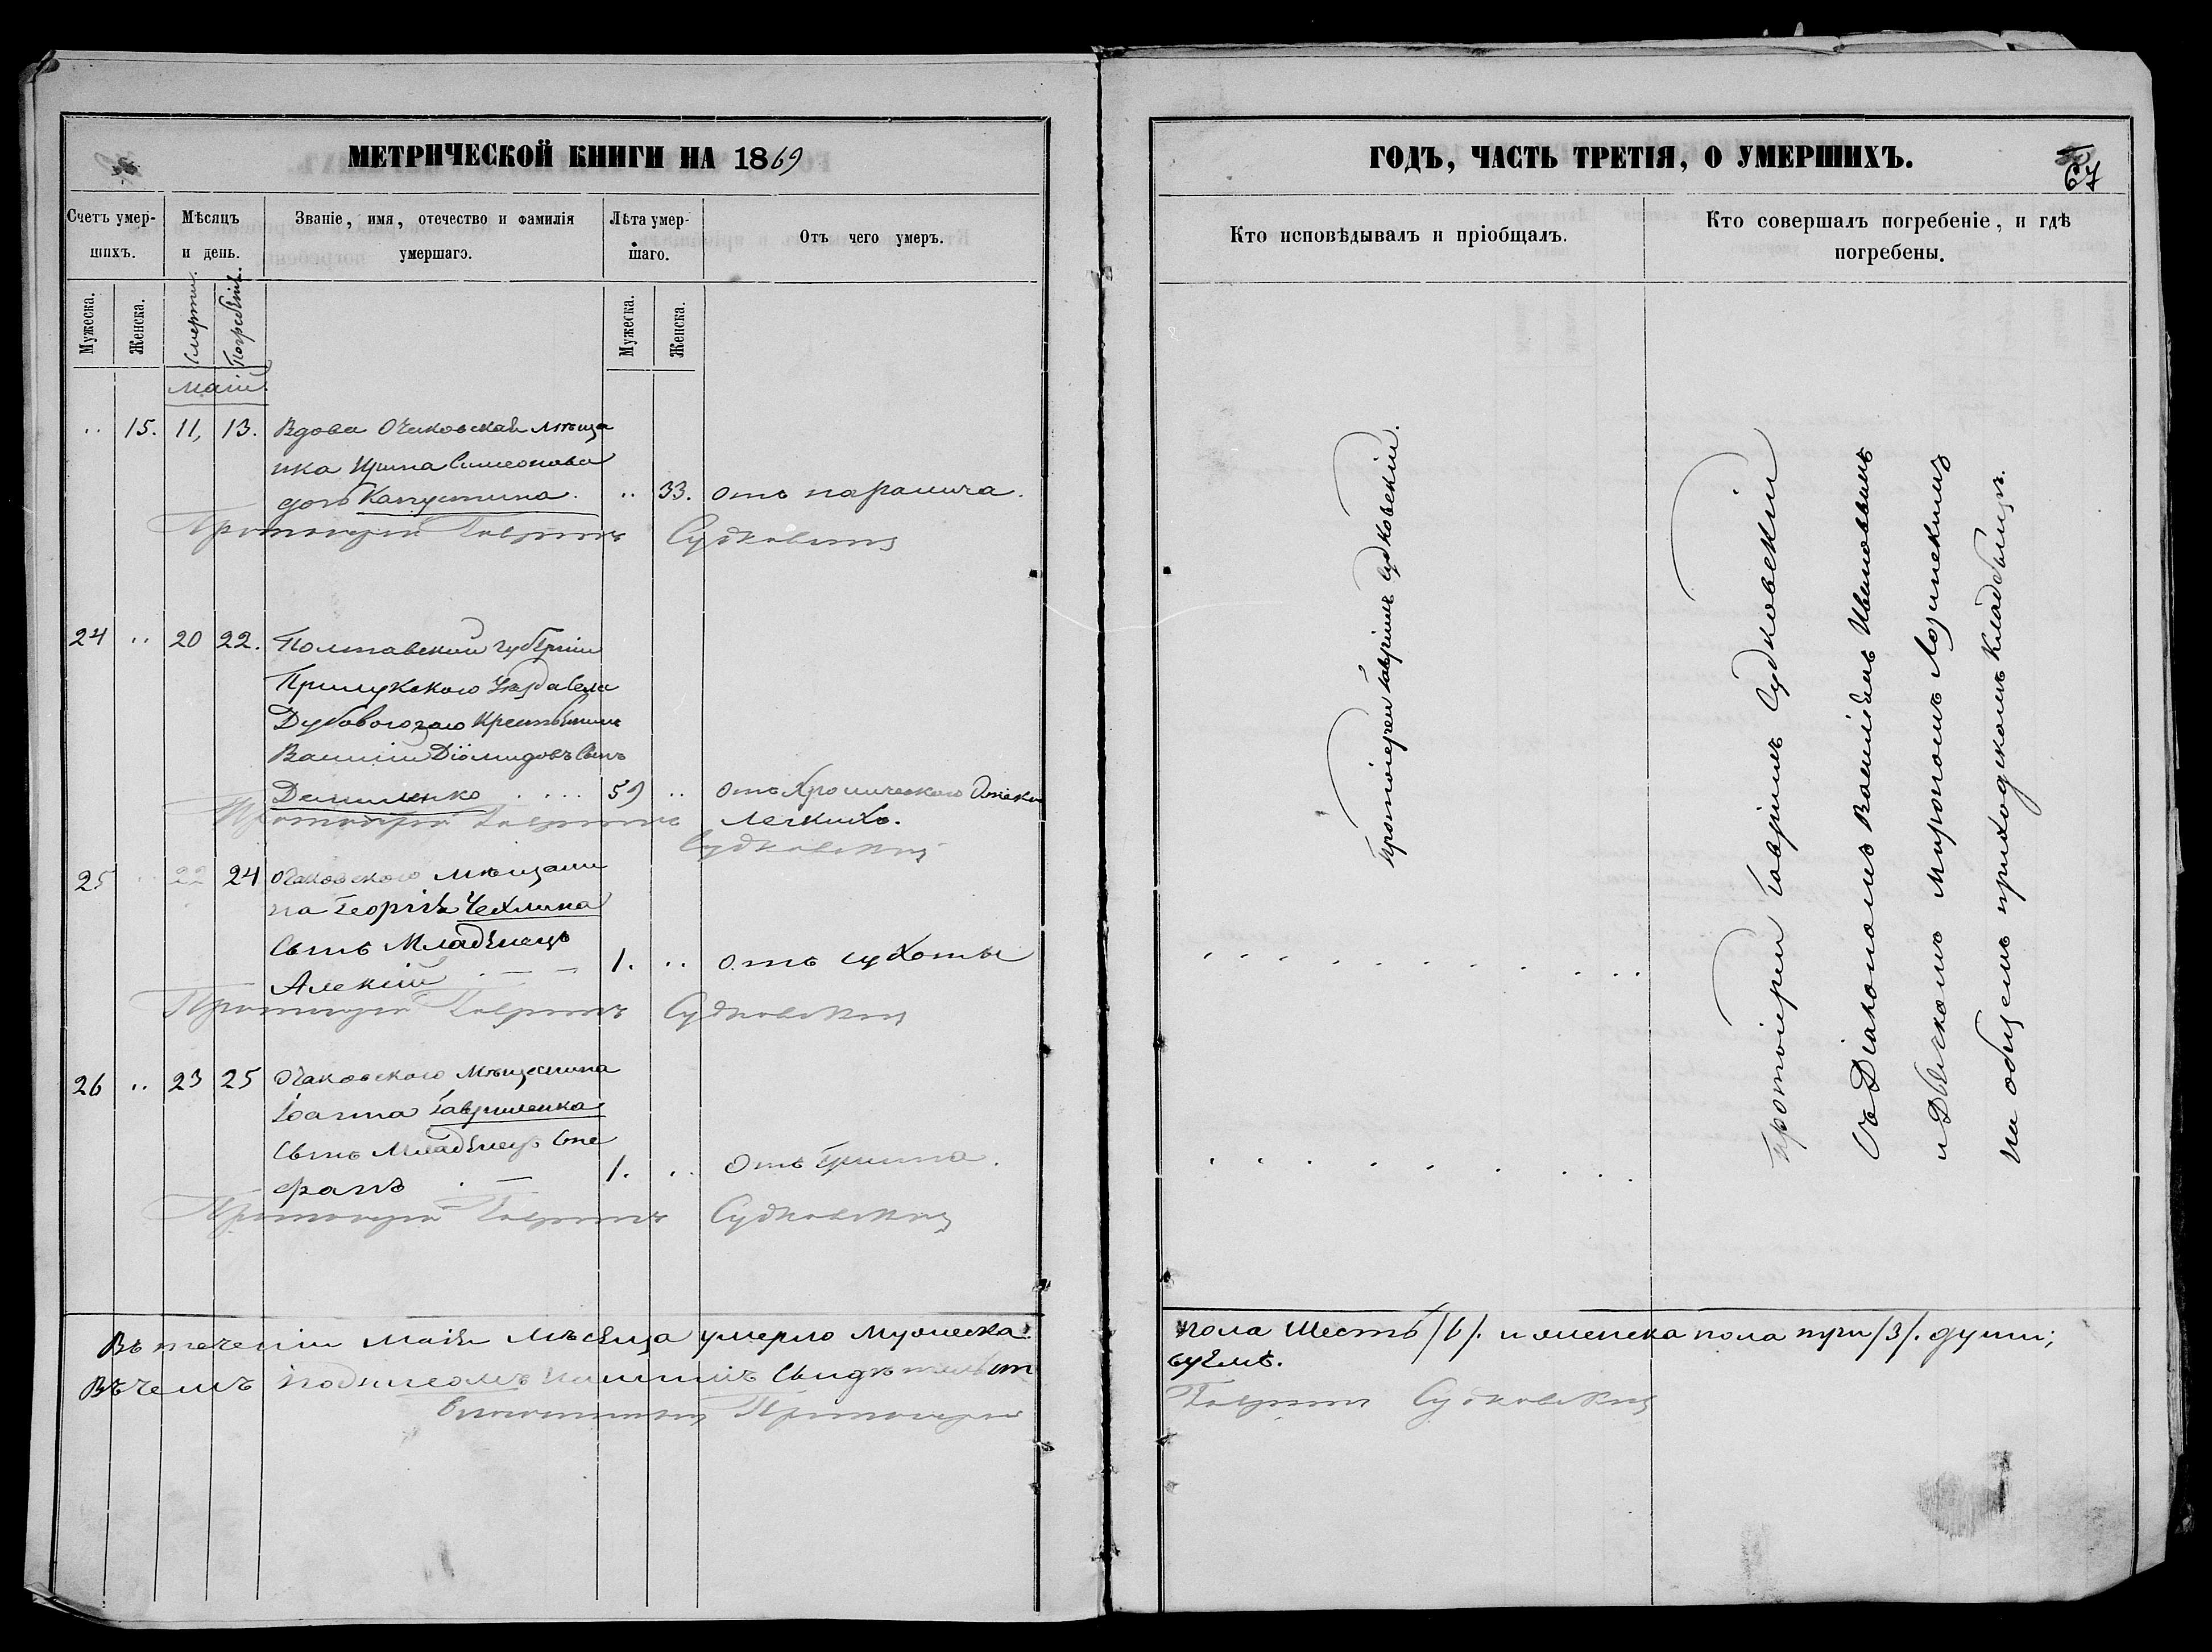 МЕТРИЧЕСКОЙ КНИГИ НА 1869
Счетъ умер-
шихъ.
Мѣсяцъ
и день.
Званіе, имя, отечество и фамилія
умершаго.
Лѣта умер-
шаго.
Отъ чего умеръ.
Мужеска.
Женска.
Смерти.
Погребенія.
Мужеска.
Женска.
Маій
.. 15. 11, 13. Вдова Очаковская мѣща
нка Ирина Симеонова
дочь Капустина. .. 33. отъ паралича.
Протоіерей Гавріилъ Судковскій
24 .. 20 22. Полтавской губерніи
Прилукскаго уѣзда села
Крестьянинъ
Василій Діомидовъ сынъ
Даниленко . . . . 59 .. отъ хроническаго
легкихъ.
Протоіерей Гавріилъ
Судковскій
25 .. 22 24 Очаковскаго мѣщани
на Георгія Чехлина
сынъ младенецъ
Алексій 1. .. отъ сухоты
Протоіерей Гавріилъ Судковскій
26 .. 23 25 Очаковскаго мѣщанина
Іоанна Гавриленка
сынъ младенецъ Сте
фанъ 1. .. отъ
Протоіерей Гавріилъ Судковскій
Въ теченіи маія мѣсяца умерло мужеска
Въ чемъ подписомъ нашимъ свидѣтельст
Протоіерей
ГОДЪ, ЧАСТЬ ТРЕТІЯ, О УМЕРШИХЪ.
67
Кто исповѣдывалъ и пріобщалъ.
Кто совершалъ погребеніе, и гдѣ
погребены.
Протоіерей Гавріилъ Судковскій.
Протоіерей Гавріилъ Судковскій
съ Діакономъ Василіемъ Ивановымъ
и Дьячкомъ Мирономъ Лозинскимъ
на общемъ приходскомъ кладбищѣ.
пола шесть /6/. и женска пола три /3/. души;
вуемъ.
Гавріилъ Судковскій